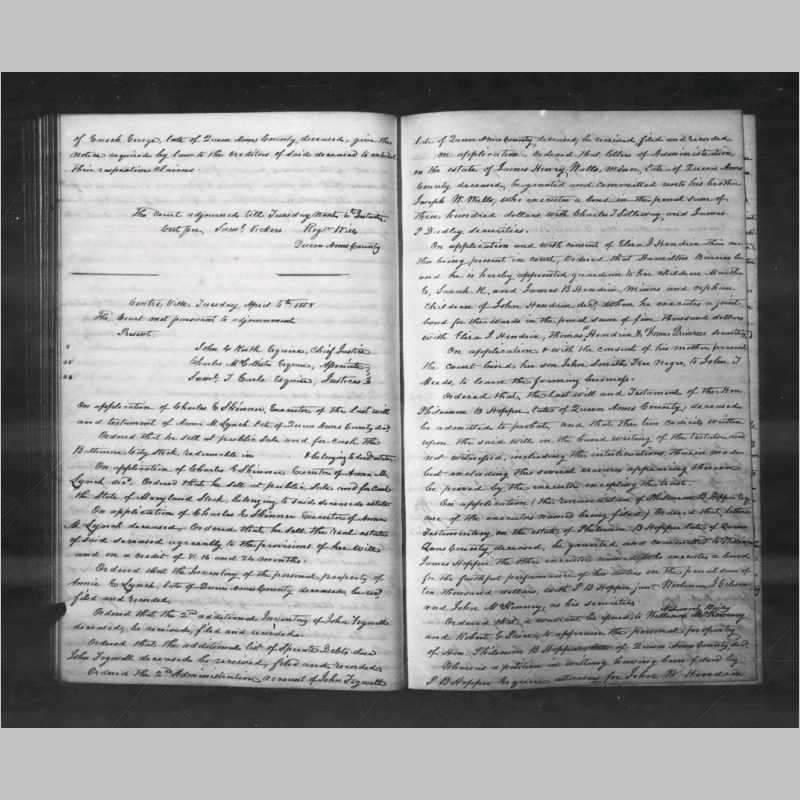 of Enoch George, late of Queen Anns County, deceased, give the
notice required by law to the creditors of said deceased to exhibit
their respective Claims.
The Court adjourned till Tuesday next 6th Instant,
Test for, Saml. Vickers Regr Wills
Queen Anns County
Centre Ville Tuesday April 6th 1858
The Court met pursuant to adjournment
Present.
John C Ruth Esquire, Chief Justice
Charles McCollister Esquire, Associate
Saml. T Earle Esquire, Justices
On application of Charles C Skinner, Executor of the last will
and testament of Anna M Lynch late of Queen Anns County decd
Ordered that he sell at public Sale and for cash the
Baltimore City Stock, redeemable in & belonging to dec'd estate
On application of Charles C Skinner Executor of Anna M.
Lynch decd. Ordered that he sell at public Sale and for Cash
the State of Maryland Stock, belonging to said deceaseds estate
On application of Charles C Skinner Executor of Anna
M Lynch deceased, Ordered that he sell the real estate
of said deceased agreeably to the provisions of her Will
and on a credit of 8, 16 and 24 months.
Ordered that the Inventory of the personal property of
Annie C Lynch, late of Queen Anns County deceased, be recd
filed and recorded
Ordered that the 2nd additional Inventory of John Fogwell
deceased, be received, filed and recorded.
Ordered that the additional list of Sperate Debts due
John Fogwell deceased be received, filed and recorded
Ordered the 2nd Administration account of John Fogwell
late of Queen Anns County, deceased, be received filed and recorded
On application, Ordered that letters of Administration,
on the estate of James Henry Wells, minor, late of Queen Anns
County deceased, be granted and committed unto his brother
Joseph W. Wells, who executes a bond in the penal sum of
three hundred dollars with Charles T Solloway, and James
P Dodley securities.
On application and with consent of Eliza J Hendrix this mo-
ther being present in court, Ordered that Hamilton Barnes be
and he is hereby appointed guardian to her children
C, Sarah R, and James B Hendrix, minors and orphan
children of John Hendrix decd, whom he executes a joint
bond for the Wards in the penal sum of five thousand dollars
with Eliza J Hendrix, Thomas Hendrix & Thomas securities
On application & with the consent of his mother present
the Court bind her son John Smith Free Negro, to John T
Meeds, to learn the farming business.
Ordered that the last Will and Testament of the Hon
Philemon B Hopper late of Queen Anns County, deceased
be admitted to probate, and that the two codicils written
upon the said will in the hand writing of the testator and
not witnessed, including the interlineations, therein made
but excluding the several erasures appearing thereon
be proved by the executor excepting the trust.
On application (the renunciation of Philemon B Hopper Esq
one of the executors named being filed) Ordered that letters
Testamentary on the estate of Philemon B Hopper late of Queen
Anns County, deceased, be granted, and committed to William
James Hopper the other executor named, who executes a bond
for the faithful performance of his duties in the penal sum of
ten thousand dollars, with P B Hopper junr J Gibson
and John McKenney, as his securities
Ordered that, a warrant be issued to William McKenney
and Robert C Price, to appraise the personal property
of Hon. Philemon B Hopper late of Queen Anns County decd.
Whereas a petition in writing having been filed by
P B Hopper Esquire attorney for John W Hendrix